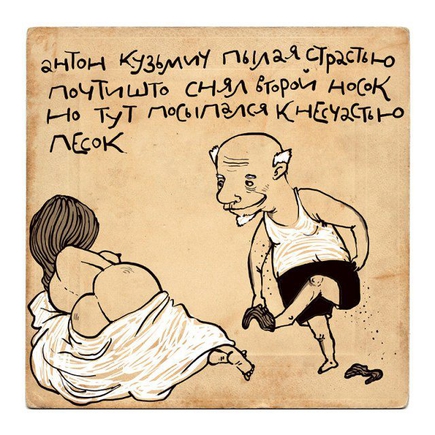 антон кузьмич пылая страстью
почтишто снял второй носок
но тут посыпался к несчастью
песок